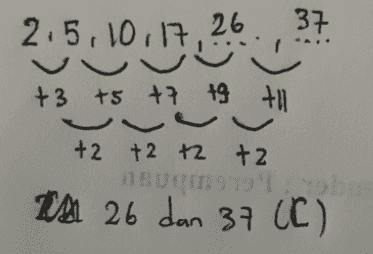 2, 5, 10, 17, 26, 37
+3 +5 +7 +9 +11
+2 +2 +2 +2
26 dan 37 (C)